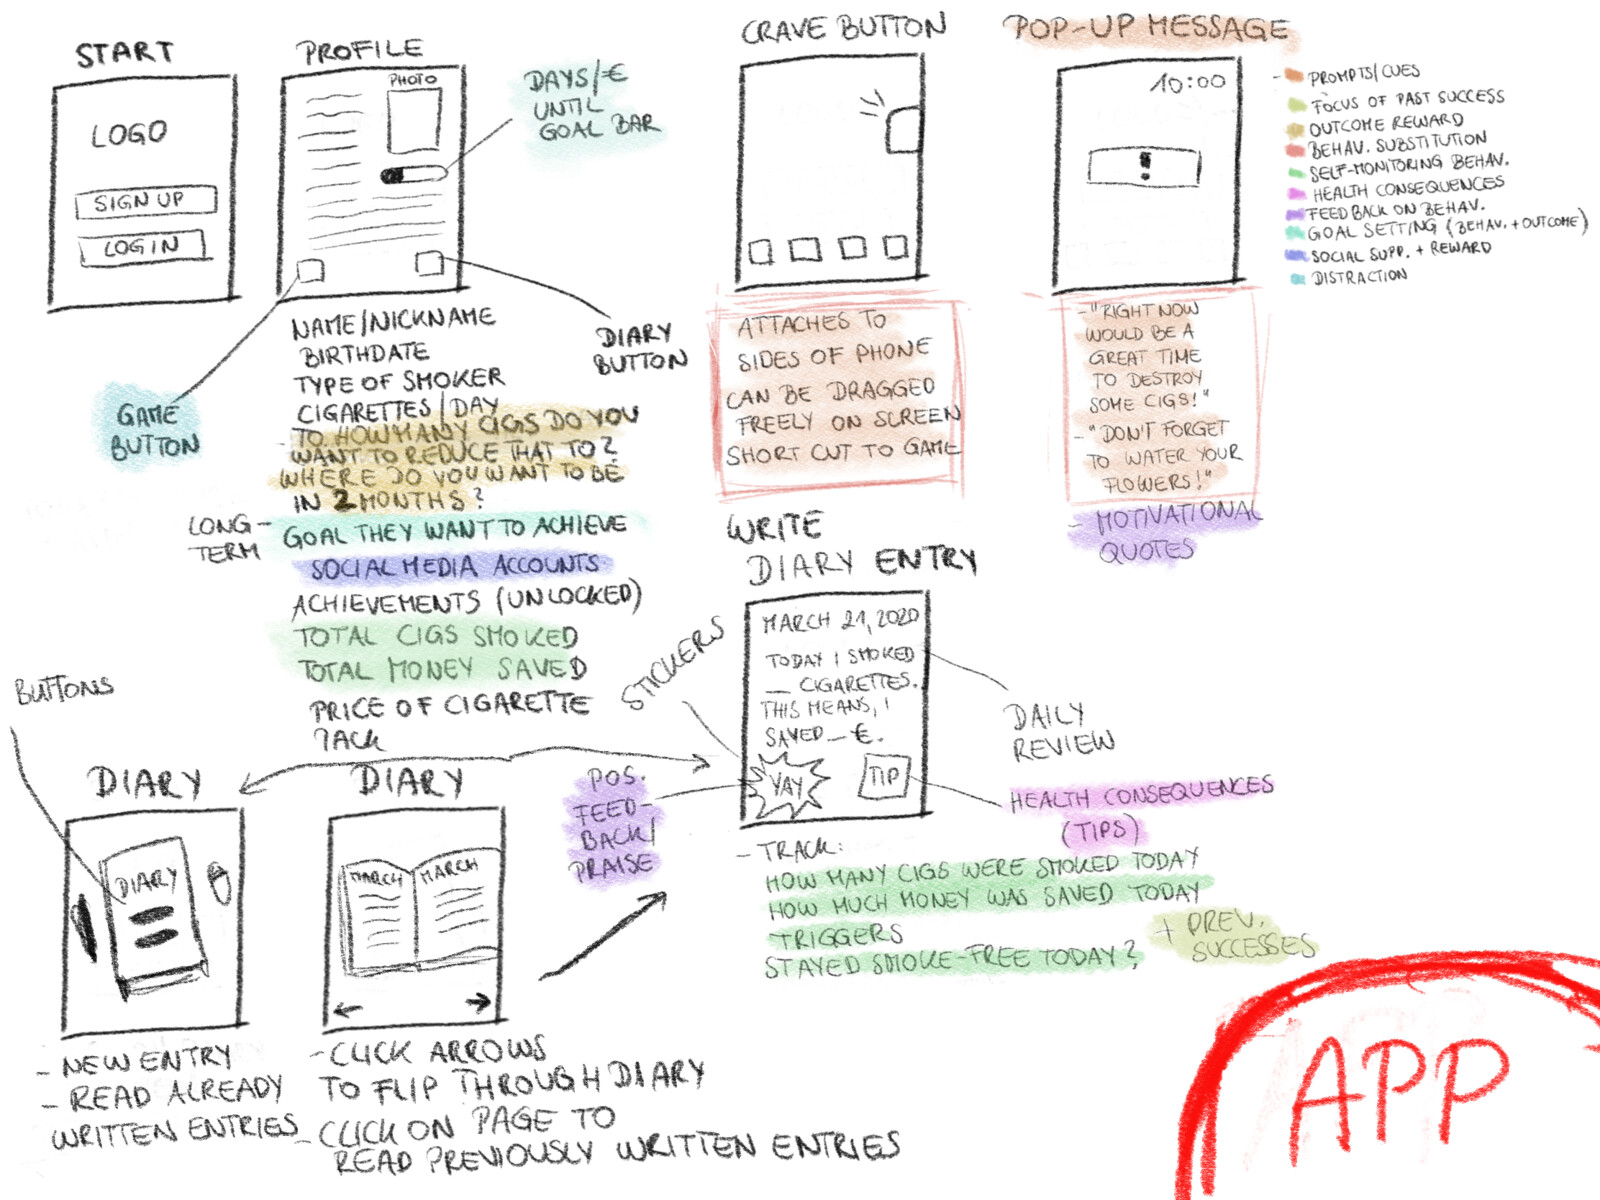 START
LOGO
SIGN UP
LOG IN
PROFILE
PHOTO
DAYS/€
UNTIL
GOAL BAR
GAME
BUTTON
DIARY
BUTTON
NAME/NICKNAME
BIRTHDATE
TYPE OF SMOKER
CIGARETTES/DAY
- TO HOW MANY CIGS DO YOU
WANT TO REDUCE THAT TO?
WHERE DO YOU WANT TO BE
IN 2 MONTHS?
LONG-
TERM
GOAL THEY WANT TO ACHIEVE
SOCIAL MEDIA ACCOUNTS
ACHIEVEMENTS (UNLOCKED)
TOTAL CIGS SMOKED
TOTAL MONEY SAVED
PRICE OF CIGARETTE
PACK
CRAVE BUTTON
ATTACHES TO
SIDES OF PHONE
CAN BE DRAGGED
FREELY ON SCREEN
SHORT CUT TO GAME
POP-UP MESSAGE
10:00
!
- "RIGHT NOW
WOULD BE A
GREAT TIME
TO DESTROY
SOME CIGS!"
- "DON'T FORGET
TO WATER YOUR
FLOWERS!"
- MOTIVATIONAL
QUOTES
- PROMPTS/CUES
FOCUS OF PAST SUCCESS
OUTCOME REWARD
BEHAV. SUBSTITUTION
SELF-MONITORING BEHAV.
HEALTH CONSEQUENCES
FEEDBACK ON BEHAV.
GOAL SETTING (BEHAV.+OUTCOME)
SOCIAL SUPP. + REWARD
DISTRACTION
BUTTONS
DIARY
DIARY
- NEW ENTRY
- READ ALREADY
WRITTEN ENTRIES
DIARY
MARCH
MARCH
- CLICK ARROWS
TO FLIP THROUGH DIARY
- CLICK ON PAGE TO
READ PREVIOUSLY WRITTEN ENTRIES
WRITE
DIARY ENTRY
STICKERS
MARCH 21, 2020
TODAY I SMOKED
__ CIGARETTES.
THIS MEANS, I
SAVED __ €.
YAY
TIP
POS.
FEED-
BACK/
PRAISE
DAILY
REVIEW
HEALTH CONSEQUENCES
(TIPS)
- TRACK:
HOW MANY CIGS WERE SMOKED TODAY
HOW MUCH MONEY WAS SAVED TODAY
TRIGGERS
STAYED SMOKE-FREE TODAY?
+ PREV.
SUCCESSES
APP